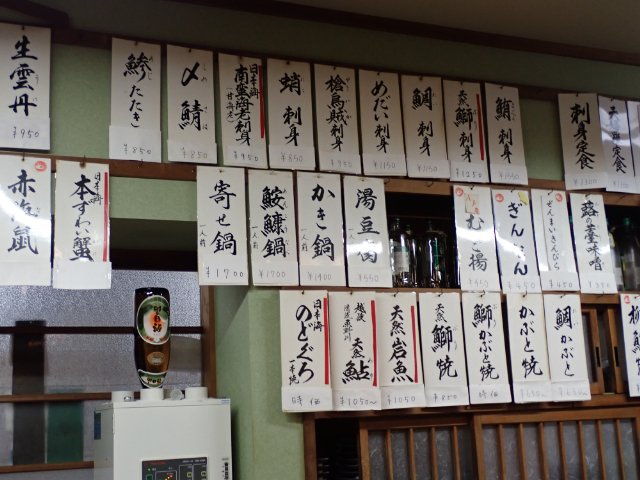 生雲丹
¥950
鯵たたき
¥850
〆鯖
¥850
日本海
南蛮海老刺身
(甘海老)
¥950
蛸刺身
¥850
槍烏賊刺身
¥950
めだい刺身
¥1150
鯛刺身
¥1150
天然鰤刺身
¥1250
鮪刺身
刺身定食
天
定食
赤海鼠
日本海
本ずわい蟹
寄せ鍋
一人前
¥1700
鮟鱇鍋
一人前
¥1700
かき鍋
一人前
¥1400
湯豆腐
¥550
むつご揚
ぎんなん
れんこんきんぴら
蕗の薹味噌
日本海
のどぐろ
一本焼
時価
越後
天然鮎
¥1050〜
天然岩魚
¥1050
天然鰤焼
¥850
鰤かぶと焼
時価
かぶと焼
鯛かぶと